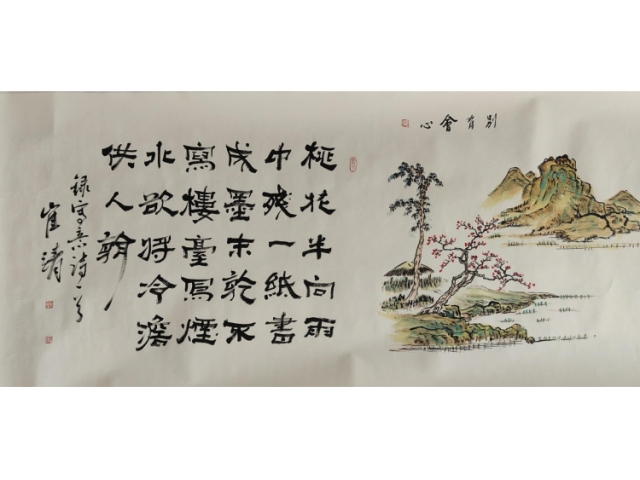 別有會心
桃花半向雨
中残一紙書
成墨未乾不
寫樓臺寫煙
水欲將冷澹
供人
錄寫意詩一首
崔濤